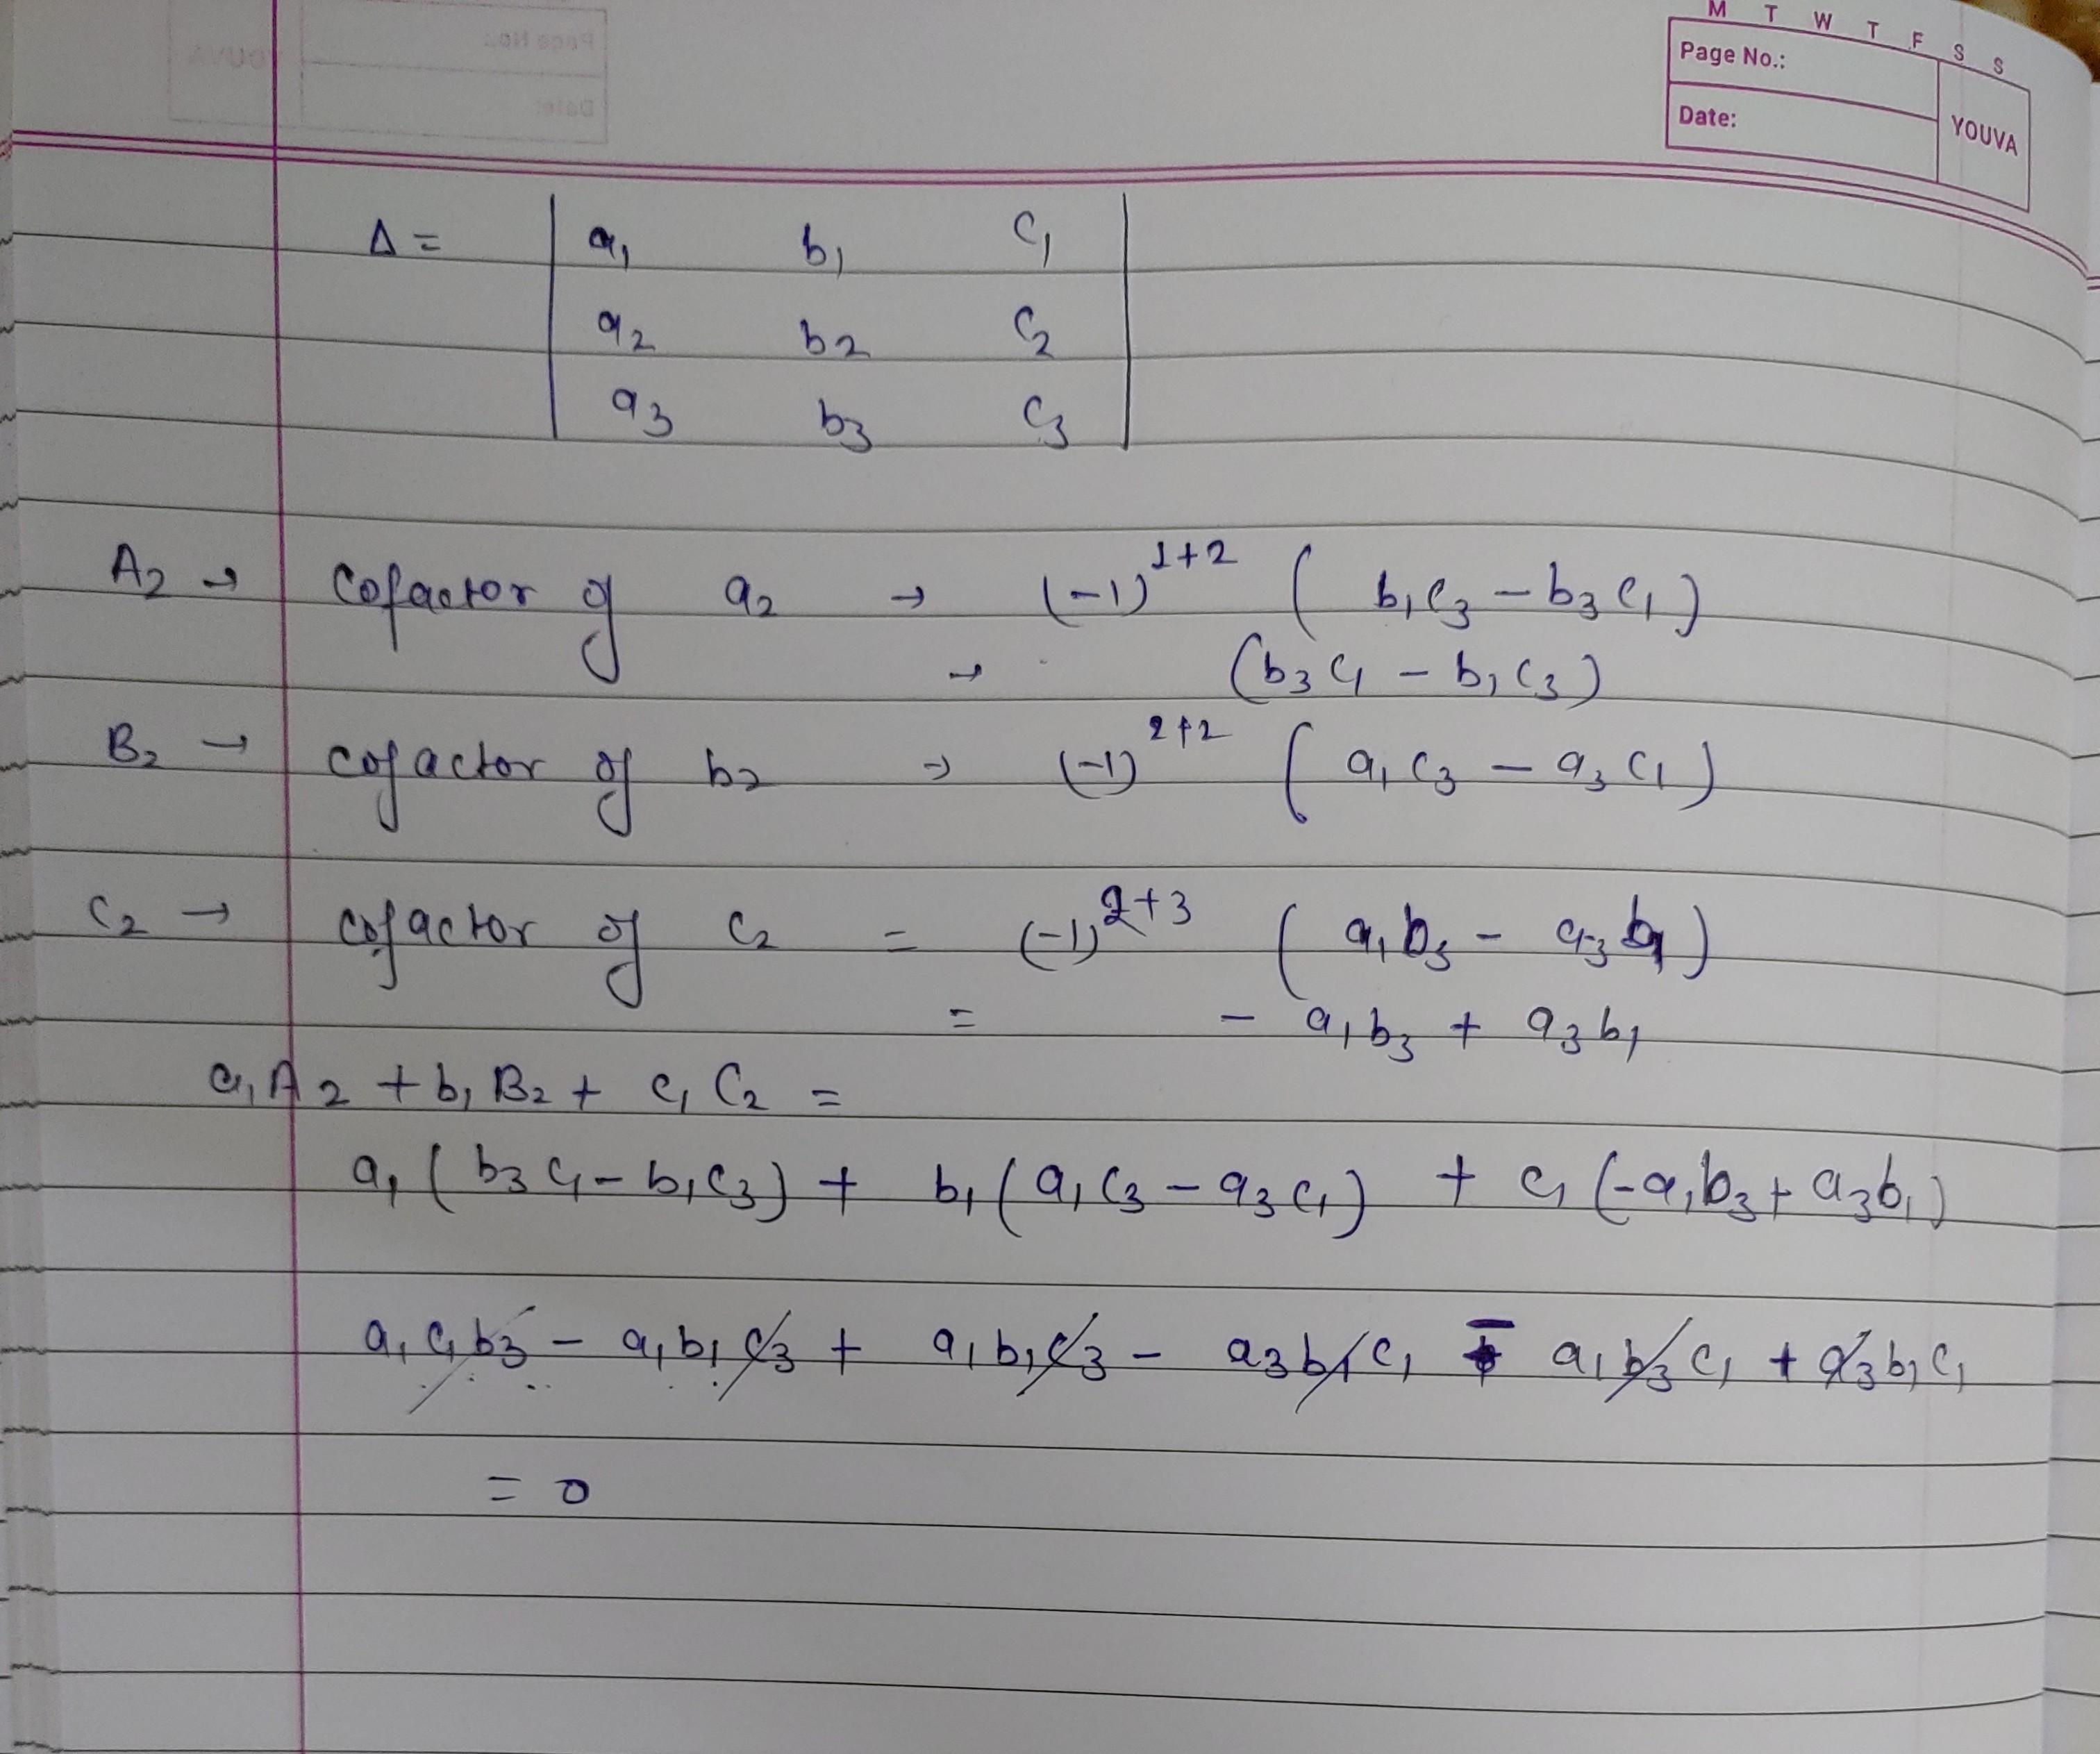 M T W T F S S
Page No.:
Date:
YOUVA
Δ = | a₁ b₁ c₁ |
| a₂ b₂ c₂ |
| a₃ b₃ c₃ |
A₂ → Cofactor of a₂ → (-1)¹⁺² ( b₁c₃ - b₃c₁ )
→ (b₃c₁ - b₁c₃)
B₂ → cofactor of b₂ → (-1)²⁺² ( a₁c₃ - a₃c₁ )
C₂ → cofactor of c₂ = (-1)²⁺³ ( a₁b₃ - a₃b₁ )
= - a₁b₃ + a₃b₁
a₁A₂ + b₁B₂ + c₁C₂ =
a₁( b₃c₁ - b₁c₃ ) + b₁( a₁c₃ - a₃c₁ ) + c₁(-a₁b₃ + a₃b₁)
a₁c₁b₃ - a₁b₁c₃ + a₁b₁c₃ - a₃b₁c₁ - a₁b₃c₁ + a₃b₁c₁
= 0